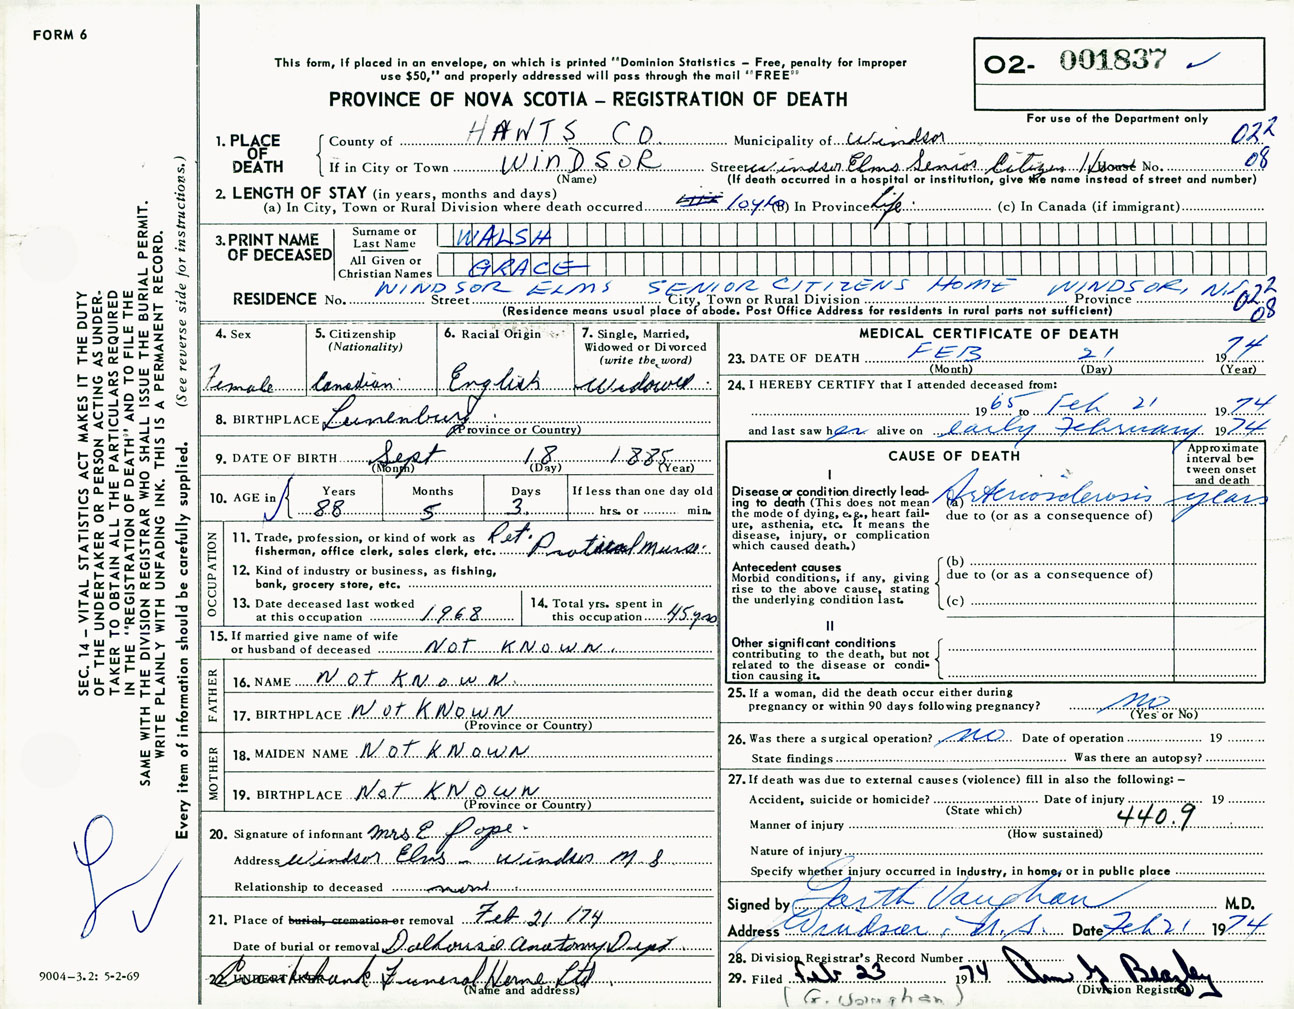 FORM 6
This form, if placed in an envelope, on which is printed "Dominion Statistics – Free, penalty for improper
use $50," and properly addressed will pass through the mail "FREE"
PROVINCE OF NOVA SCOTIA – REGISTRATION OF DEATH
02- 001837
For use of the Department only
1. PLACE OF DEATH
County of HANTS CO. Municipality of Windsor 022
If in City or Town WINDSOR Street Windsor Elms Senior Citizen House No. 08
(Name) (If death occurred in a hospital or institution, give the name instead of street and number)
2. LENGTH OF STAY (in years, months and days)
(a) In City, Town or Rural Division where death occurred 10 yrs (b) In Province life (c) In Canada (if immigrant)
3. PRINT NAME OF DECEASED
Surname or Last Name WALSH
All Given or Christian Names GRACE
RESIDENCE No. Street City, Town or Rural Division Province
WINDSOR ELMS SENIOR CITIZENS HOME WINDSOR, NS 022
08
(Residence means usual place of abode. Post Office Address for residents in rural parts not sufficient)
4. Sex Female
5. Citizenship (Nationality) Canadian
6. Racial Origin English
7. Single, Married, Widowed or Divorced (write the word) Widowed
8. BIRTHPLACE Lunenburg
(Province or Country)
9. DATE OF BIRTH Sept 18 1885
(Month) (Day) (Year)
10. AGE in Years 88 Months 5 Days 3 If less than one day old hrs. or min.
OCCUPATION
11. Trade, profession, or kind of work as Ret. Practical Nurse
fisherman, office clerk, sales clerk, etc.
12. Kind of industry or business, as fishing,
bank, grocery store, etc.
13. Date deceased last worked at this occupation 1968
14. Total yrs. spent in this occupation 45 yrs
15. If married give name of wife
or husband of deceased Not Known
FATHER
16. NAME Not Known
17. BIRTHPLACE Not Known
(Province or Country)
MOTHER
18. MAIDEN NAME Not Known
19. BIRTHPLACE Not Known
(Province or Country)
20. Signature of informant Mrs E Pope
Address Windsor Elms – Windsor N S
Relationship to deceased none
21. Place of burial, cremation or removal Feb 21 / 74
Date of burial or removal Dalhousie Anatomy Dept.
22. UNDERTAKER Funeral Home Ltd
(Name and address)
MEDICAL CERTIFICATE OF DEATH
23. DATE OF DEATH FEB 21 1974
(Month) (Day) (Year)
24. I HEREBY CERTIFY that I attended deceased from:
1965 to Feb 21 1974
and last saw her alive on early February 1974
CAUSE OF DEATH
Approximate interval between onset and death
I
Disease or condition directly leading to death (This does not mean the mode of dying, e.g., heart failure, asthenia, etc. It means the disease, injury, or complication which caused death.)
(a) Arteriosclerosis years
due to (or as a consequence of)
Antecedent causes
Morbid conditions, if any, giving rise to the above cause, stating the underlying condition last.
(b)
due to (or as a consequence of)
(c)
II
Other significant conditions
contributing to the death, but not related to the disease or condition causing it.
25. If a woman, did the death occur either during
pregnancy or within 90 days following pregnancy? no
(Yes or No)
26. Was there a surgical operation? no Date of operation 19
State findings Was there an autopsy?
27. If death was due to external causes (violence) fill in also the following: –
Accident, suicide or homicide? Date of injury 19
(State which)
Manner of injury 440.9
(How sustained)
Nature of injury
Specify whether injury occurred in industry, in home, or in public place
Signed by Garth Vaughan M.D.
Address Windsor, N.S. Date Feb 21 1974
28. Division Registrar's Record Number
29. Filed Feb 23 1974
(Division Registrar)
(G. Vaughan)
SEC. 14 – VITAL STATISTICS ACT MAKES IT THE DUTY
OF THE UNDERTAKER OR PERSON ACTING AS UNDER-
TAKER TO OBTAIN ALL THE PARTICULARS REQUIRED
IN THE "REGISTRATION OF DEATH" AND TO FILE THE
SAME WITH THE DIVISION REGISTRAR WHO SHALL ISSUE THE BURIAL PERMIT.
WRITE PLAINLY WITH UNFADING INK. THIS IS A PERMANENT RECORD.
Every item of information should be carefully supplied. (See reverse side for instructions.)
9004–3.2: 5-2-69